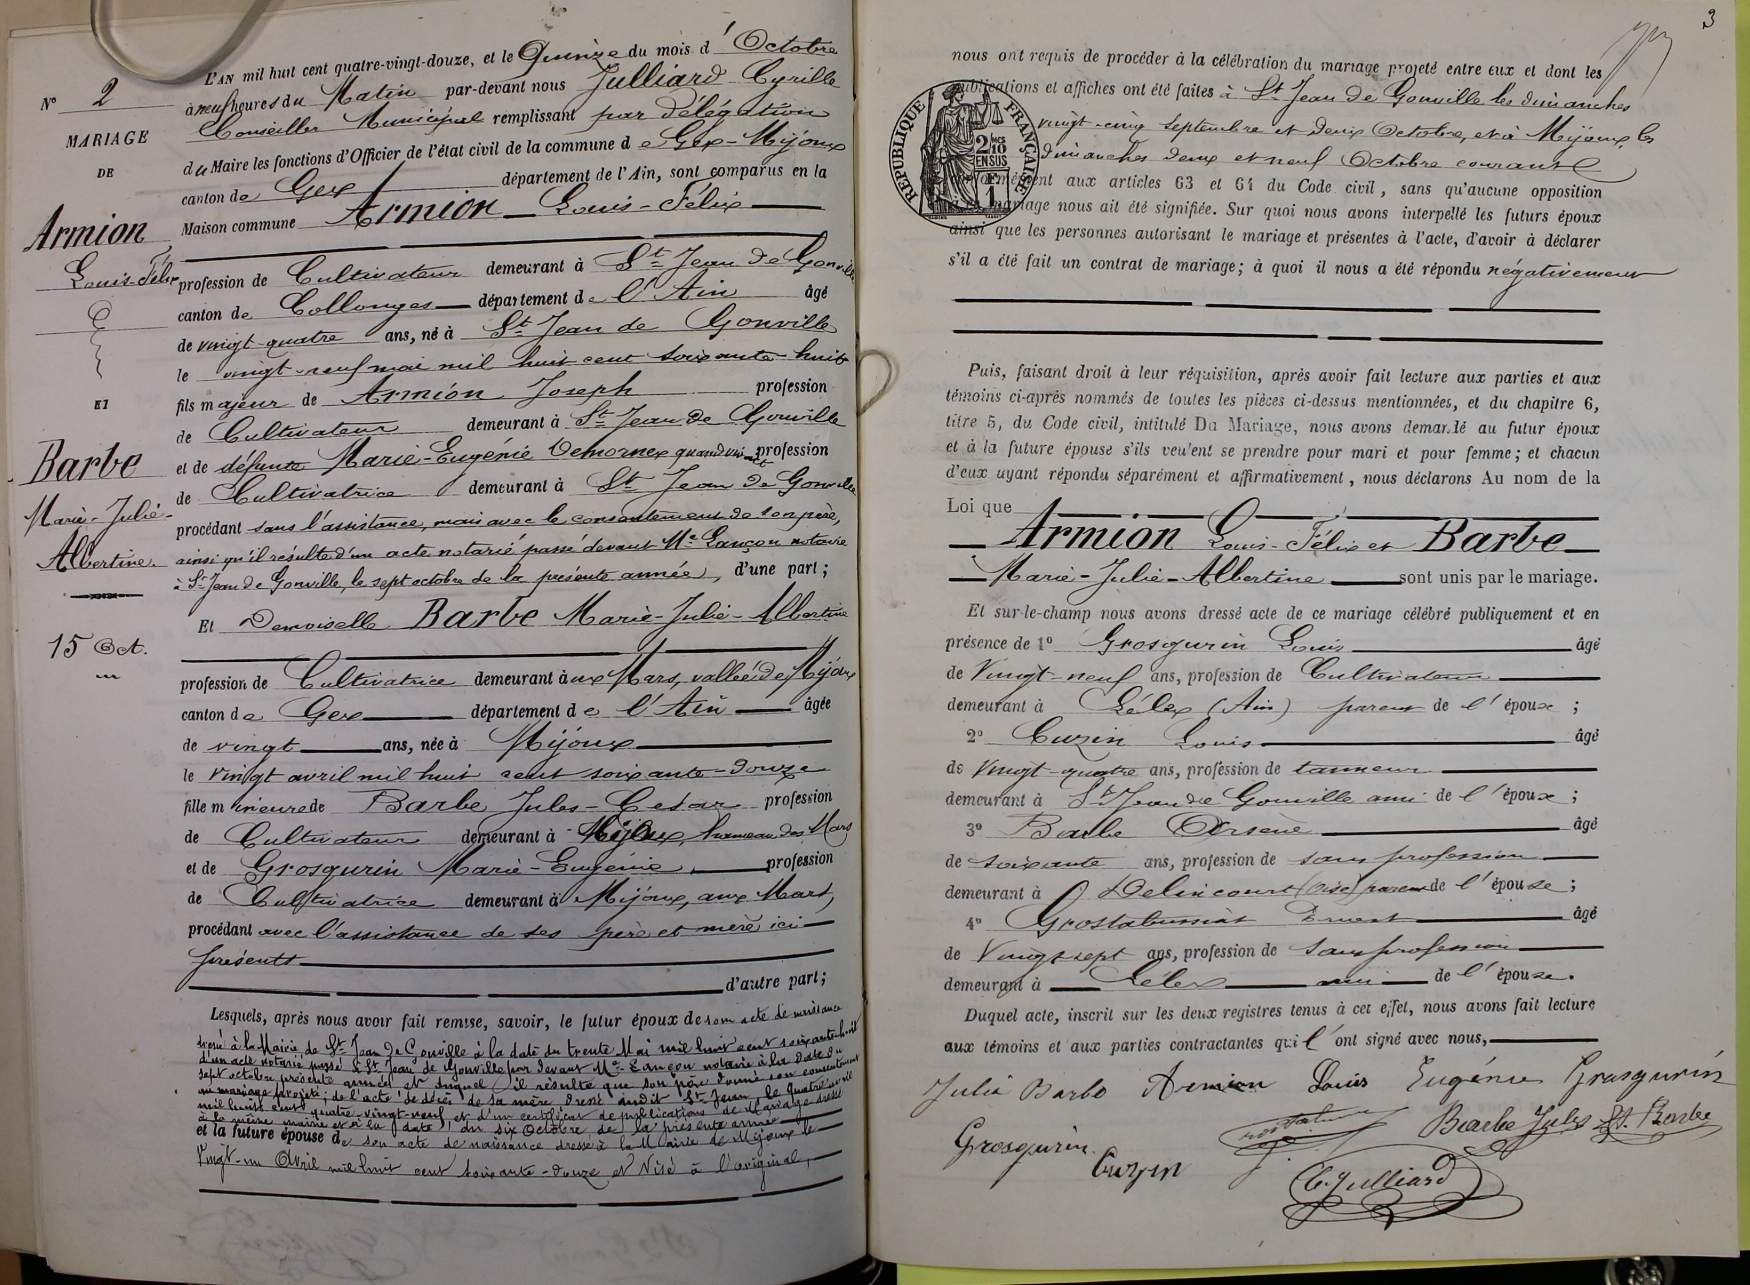 N° 2
MARIAGE
DE
Armion
Louis-Félix
ET
Barbe
Marie-Julie-
Albertine.
15 Oct.
L'AN mil huit cent quatre-vingt-douze, et le Quinze du mois d'Octobre
à neuf heures du Matin par-devant nous Julliard Cyrille
Conseiller Municipal remplissant par délégation
du Maire les fonctions d'Officier de l'état civil de la commune de Gex-Mijoux
canton de Gex département de l'Ain, sont comparus en la
Maison commune Armion Louis-Félix
profession de Cultivateur demeurant à St Jean de Gonville
canton de Collonges département de l'Ain âgé
de vingt-quatre ans, né à St Jean de Gonville
le vingt-neuf mai mil huit cent soixante-huit
fils majeur de Armion Joseph profession
de Cultivateur demeurant à St Jean de Gonville
et de défunte Marie-Eugénie Demornex quand vivait profession
de Cultivatrice demeurant à St Jean de Gonville
procédant sans l'assistance, mais avec le consentement de son père,
ainsi qu'il résulte d'un acte notarié passé devant Me Lançon notaire
à St Jean de Gonville, le sept octobre de la présente année, d'une part;
Et Demoiselle Barbe Marie-Julie-Albertine
profession de Cultivatrice demeurant aux Mars, vallée de Mijoux
canton de Gex département de l'Ain âgée
de vingt ans, née à Mijoux
le vingt avril mil huit cent soixante-douze
fille mineure de Barbe Jules-César profession
de Cultivateur demeurant à Mijoux, hameau des Mars
et de Grosgurin Marie-Eugénie, profession
de Cultivatrice demeurant à Mijoux, aux Mars,
procédant avec l'assistance de ses père et mère ici
présents
d'autre part;
Lesquels, après nous avoir fait remise, savoir, le futur époux de son acte de naissance
dressé à la Mairie de St Jean de Gonville à la date du trente Mai mil huit cent soixante-huit
d'un acte notarié passé à St Jean de Gonville par devant Me Lançon notaire à la date du
sept octobre présente année et duquel il résulte que son père donne son consentement
au mariage projeté; de l'acte de décès de sa mère dressé audit St Jean, le quatre avril
mil huit cent quatre-vingt-neuf et d'un certificat de publications de Mariage dressé
à la même mairie et à la date du six Octobre de la présente année
et la future épouse de son acte de naissance dressé à la Mairie de Mijoux le
Vingt-un Avril mil huit cent soixante-douze et Visé à l'original,
3
nous ont requis de procéder à la célébration du mariage projeté entre eux et dont les
publications et affiches ont été faites à St Jean de Gonville les dimanches
vingt-cinq Septembre et deux Octobre, et à Mijoux, les
dimanches deux et neuf Octobre courant
conformément aux articles 63 et 64 du Code civil, sans qu'aucune opposition
audit mariage nous ait été signifiée. Sur quoi nous avons interpellé les futurs époux
ainsi que les personnes autorisant le mariage et présentes à l'acte, d'avoir à déclarer
s'il a été fait un contrat de mariage; à quoi il nous a été répondu négativement
RÉPUBLIQUE FRANÇAISE
2/10 EN SUS
1F
Puis, faisant droit à leur réquisition, après avoir fait lecture aux parties et aux
témoins ci-après nommés de toutes les pièces ci-dessus mentionnées, et du chapitre 6,
titre 5, du Code civil, intitulé Du Mariage, nous avons demandé au futur époux
et à la future épouse s'ils veulent se prendre pour mari et pour femme; et chacun
d'eux ayant répondu séparément et affirmativement, nous déclarons Au nom de la
Loi que
Armion Louis-Félix et Barbe
Marie-Julie-Albertine sont unis par le mariage.
Et sur-le-champ nous avons dressé acte de ce mariage célébré publiquement et en
présence de 1° Grosgurin Louis âgé
de Vingt-neuf ans, profession de Cultivateur
demeurant à Lélex (Ain) parent de l'épouse;
2° Cuzin Louis âgé
de Vingt-quatre ans, profession de tanneur
demeurant à St Jean de Gonville ami de l'époux;
3° Barbe Arsène âgé
de soixante ans, profession de sans profession
demeurant à Delincourt (Oise) parent de l'épouse;
4° Grostabussiat Ernest âgé
de Vingt-sept ans, profession de sans profession
demeurant à Lélex ami de l'épouse.
Duquel acte, inscrit sur les deux registres tenus à cet effet, nous avons fait lecture
aux témoins et aux parties contractantes qui l'ont signé avec nous,
Julie Barbe Armion Louis Eugénie Grosgurin
Grosgurin Barbe Jules Barbe
Cuzin
C. Julliard